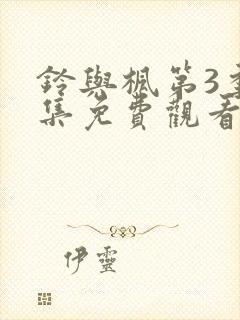 鈴與楓第3
集免費觀看
伊靈